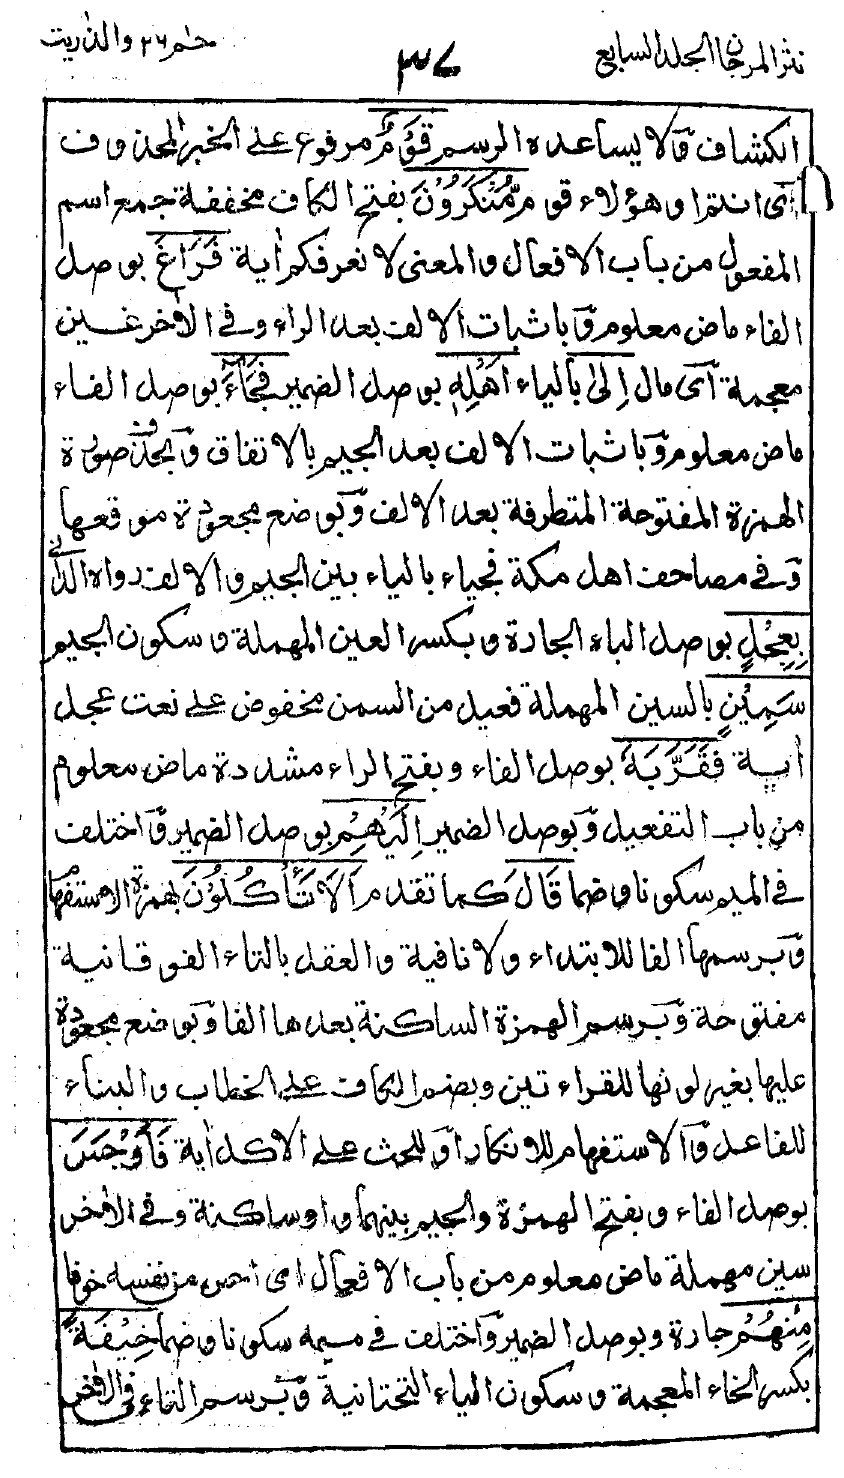 نثر المرجان الجلد السابع
٣٧
حٰم ٢٦ والذٰريت
الكشاف مما لا يساعده الرسم قَوْمٌ مرفوع على الخبر المحذوف
اى انتم او هؤلاء قوم مُّنْكَرُوْنَ بفتح الكاف مخففة جمع اسم
المفعول من باب الافعال والمعنى لا نعرفكم اٰية فَرَاغَ بوصل
الفاء ماض معلوم وباثبات الالف بعد الراء وفى الاٰخر غين
معجمة اى مال اِلىٰ بالياء اَهْلِهٖ بوصل الضمير فَجَآءَ بوصل الفاء
ماض معلوم وباثبات الالف بعد الجيم بالاتفاق وبحذف صورة
الهمزة المفتوحة المتطرفة بعد الالف وبوضع مجعودة موقعها
وفى مصاحف اهل مكة فجياء بالياء بين الجيم والالف رواه الدانى
بِعِجْلٍ بوصل الباء الجارة وبكسر العين المهملة وسكون الجيم
سَمِيْنٍ بالسين المهملة فعيل من السمن مخفوض على نعت عجل
اٰية فَقَرَّبَهٗ بوصل الفاء وبفتح الراء مشددة ماض معلوم
من باب التفعيل وبوصل الضمير اِلَيْهِمْ بوصل الضمير واختلف
فى الميم سكونا وضما قَالَ كما تقدم اَلَا تَأْكُلُوْنَ بهمزة الاستفهام
وبرسمها الفا للابتداء ولا نافية والعقل بالتاء الفوقانية
مفتوحة وبرسم الهمزة الساكنة بعدها الفا وبوضع مجعودة
عليها بغير لونها للقراءتين وبضم الكاف على الخطاب والبناء
للفاعل والاستفهام للانكار او للحث على الاكل اٰية فَاَوْجَسَ
بوصل الفاء وبفتح الهمزة والجيم بينهما واو ساكنة وفى الاٰخر
سين مهملة ماض معلوم من باب الافعال اى احس من نفسه خوفا
مِنْهُمْ جارة وبوصل الضمير واختلف فى ميمه سكونا وضما خِيْفَةً
بكسر الخاء المعجمة وسكون الياء التحتانية وبرسم التاء فى الاٰخر